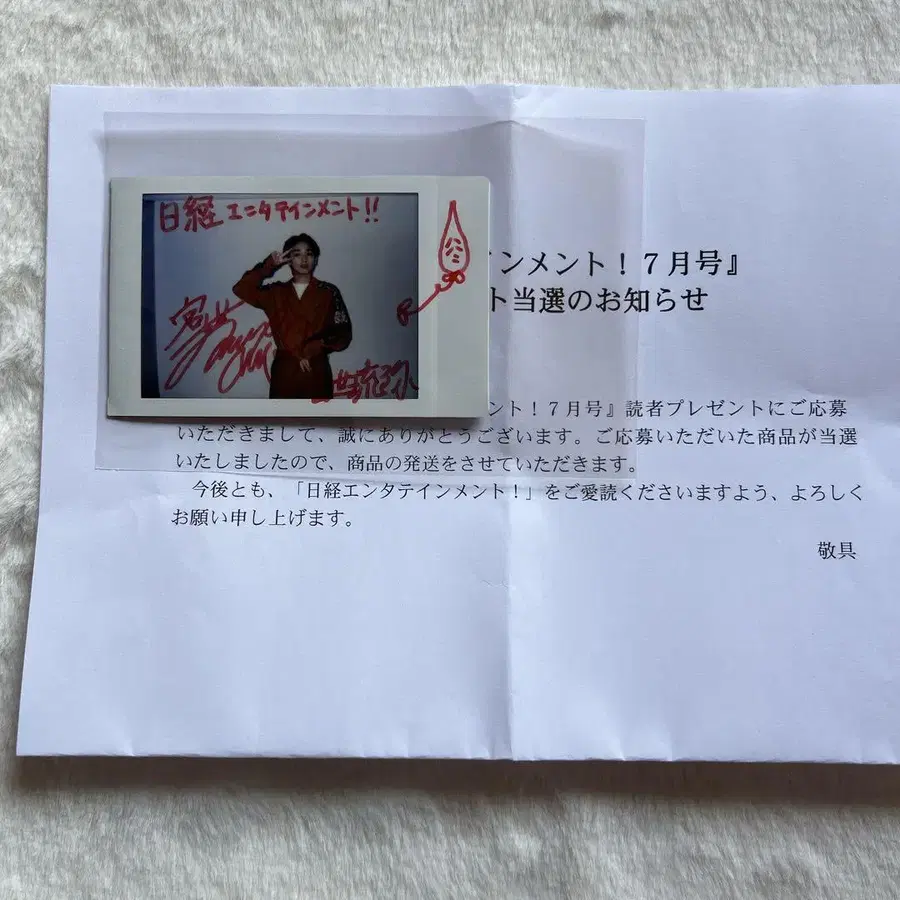 日経エンタテインメント!!
ンメント！７月号』
ト当選のお知らせ
ント！７月号』読者プレゼントにご応募
いただきまして、誠にありがとうございます。ご応募いただいた商品が当選
いたしましたので、商品の発送をさせていただきます。
今後とも、「日経エンタテインメント！」をご愛読くださいますよう、よろしく
お願い申し上げます。
敬具